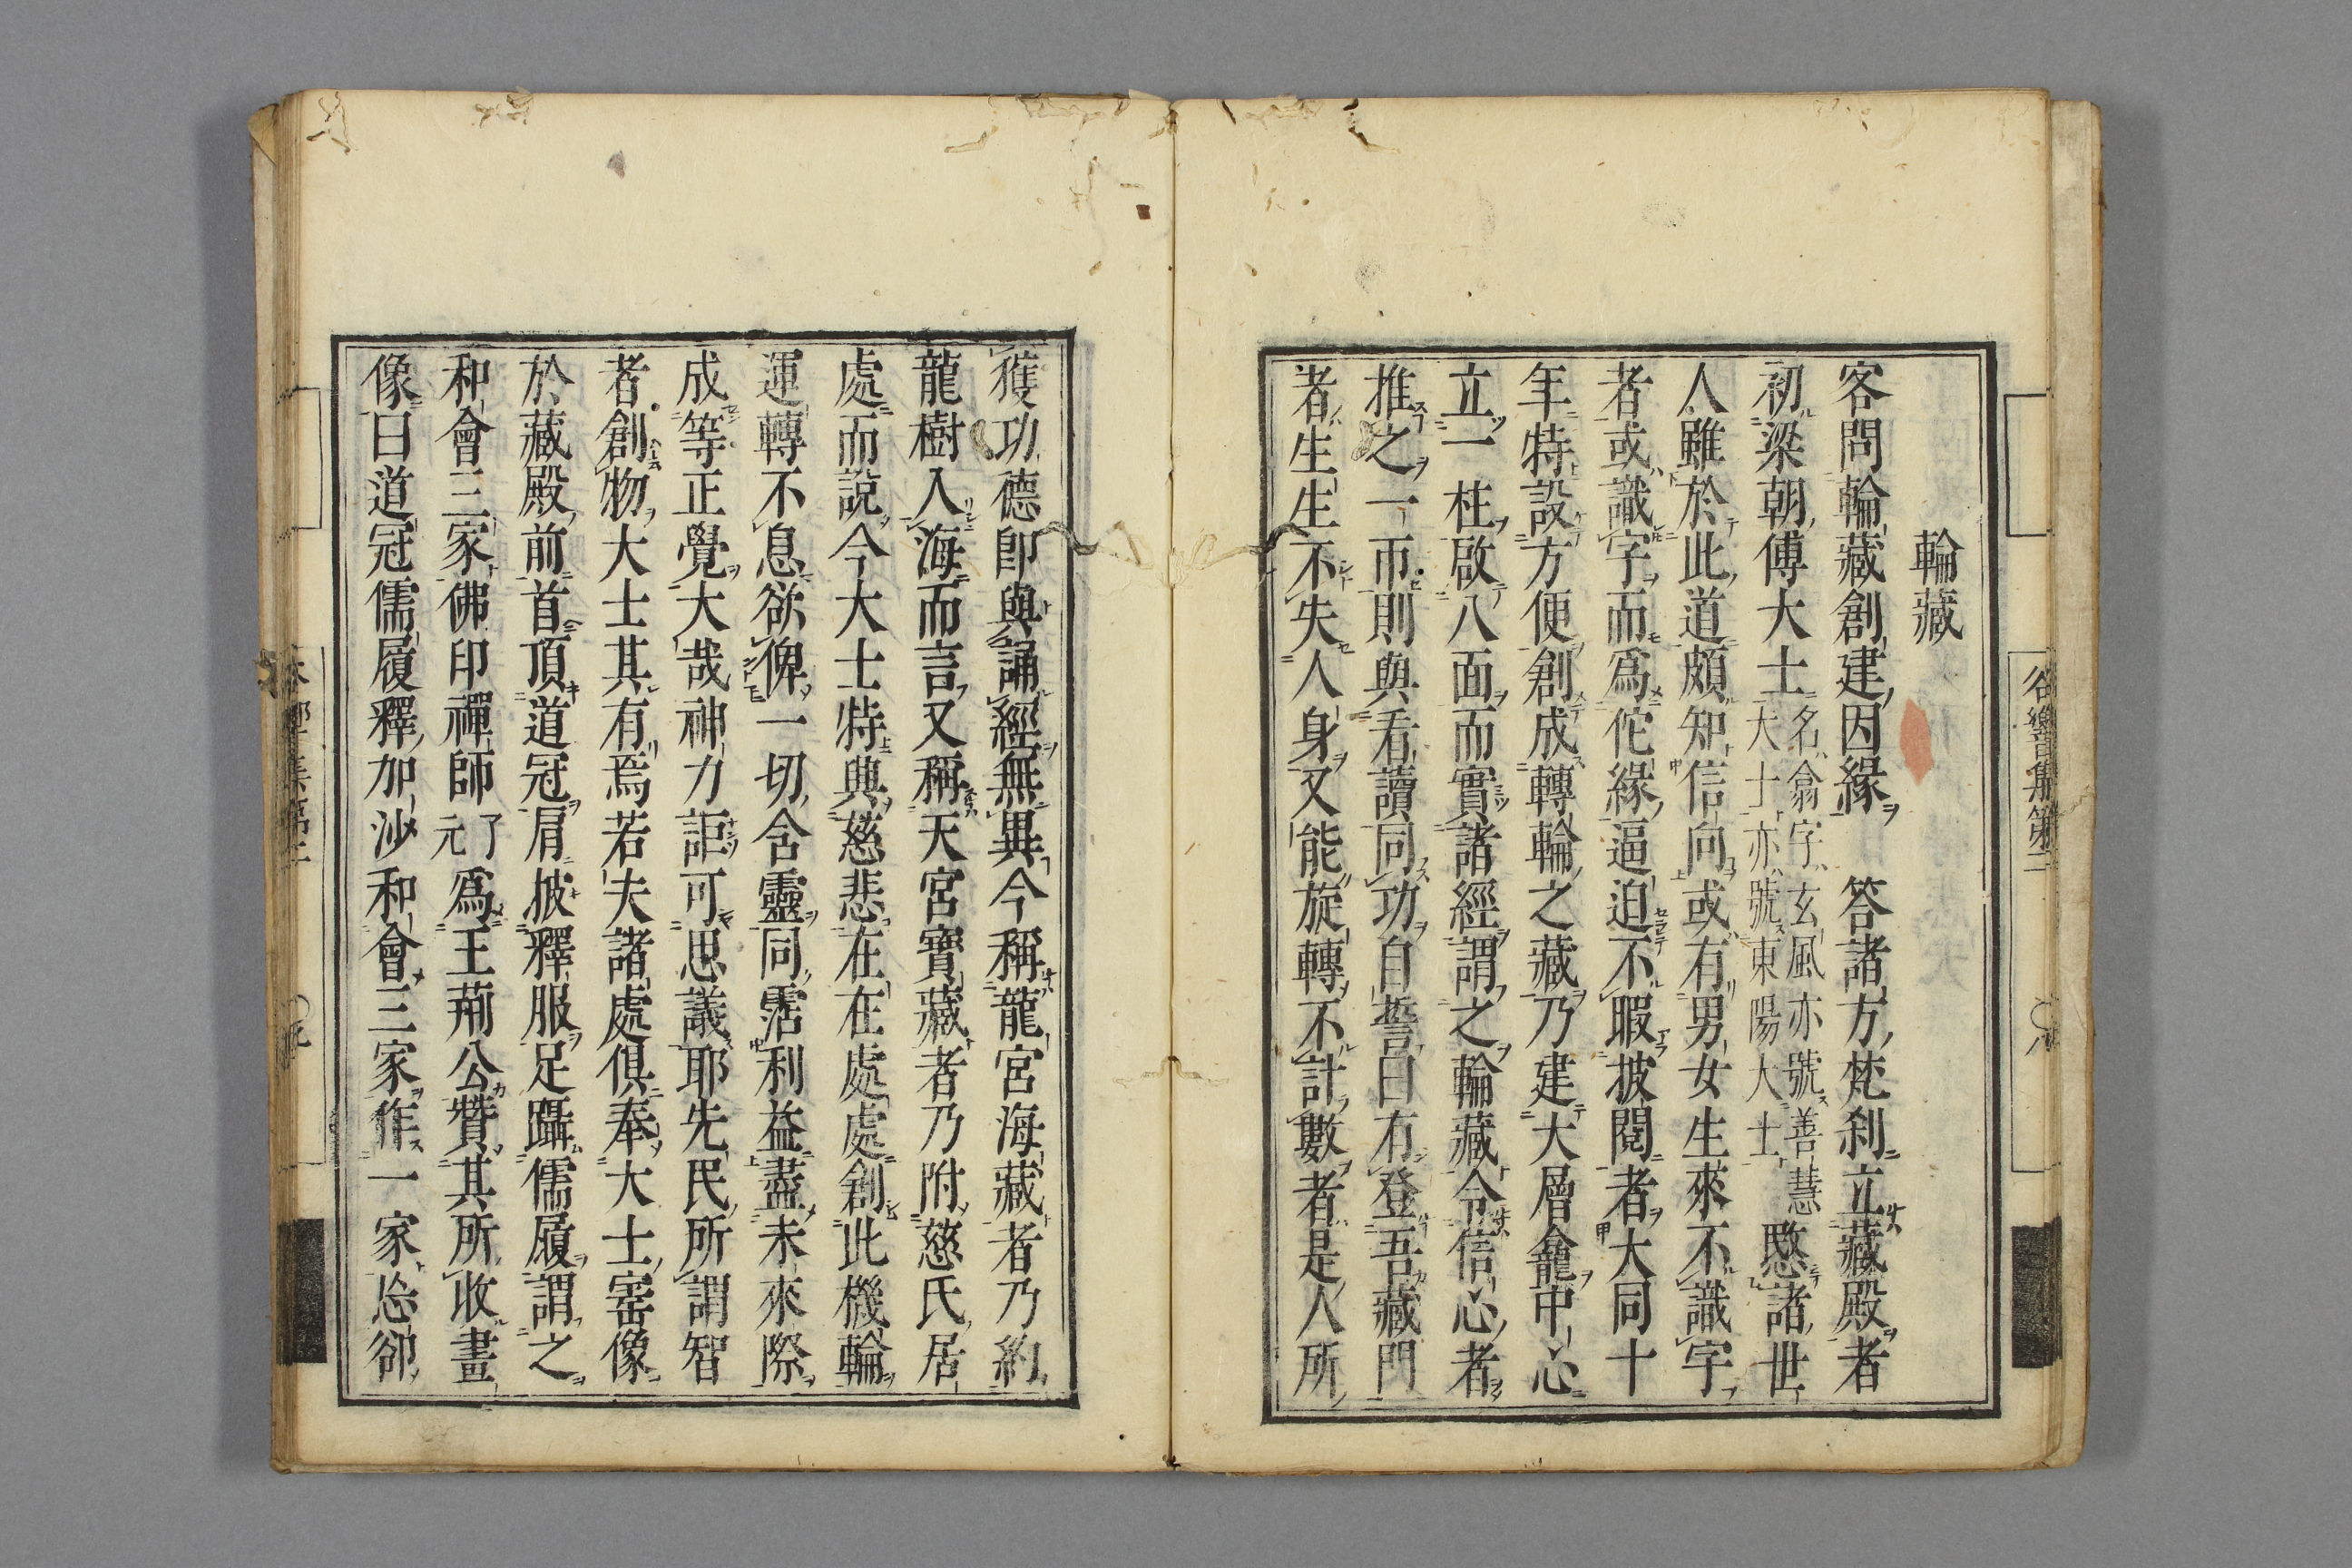 輪藏
客問輪藏創建因緣　答諸方梵刹立藏殿者
初梁朝傅大士名翕字玄風亦號善慧大士亦號東陽大士愍諸世
人雖於此道頗知信向或有男女生來不識字
者或識字而爲佗緣逼迫不暇披閱者大同十
年特設方便創成轉輪之藏乃建大層龕中心
立一柱啟八面而實諸經謂之輪藏令信心者
推之一帀則與看讀同功自誓曰有登吾藏門
者生生不失人身又能旋轉不計數者是人所
獲功德即與誦經無異今稱龍宮海藏者乃約
龍樹入海而言又稱天宮寶藏者乃附慈氏居
處而說今大士特典慈悲在在處處創此機輪
運轉不息欲俾一切含靈同霑利益盡未來際
成等正覺大哉神力詎可思議耶先民所謂智
者創物大士其有焉若夫諸處俱奉大士寍像
於藏殿前首頂道冠肩披釋服足躡儒履謂之
和會三家佛印禪師了元爲王荊公贊其所收畫
像曰道冠儒履釋加沙和會三家作一家忩卻
谷響集第二